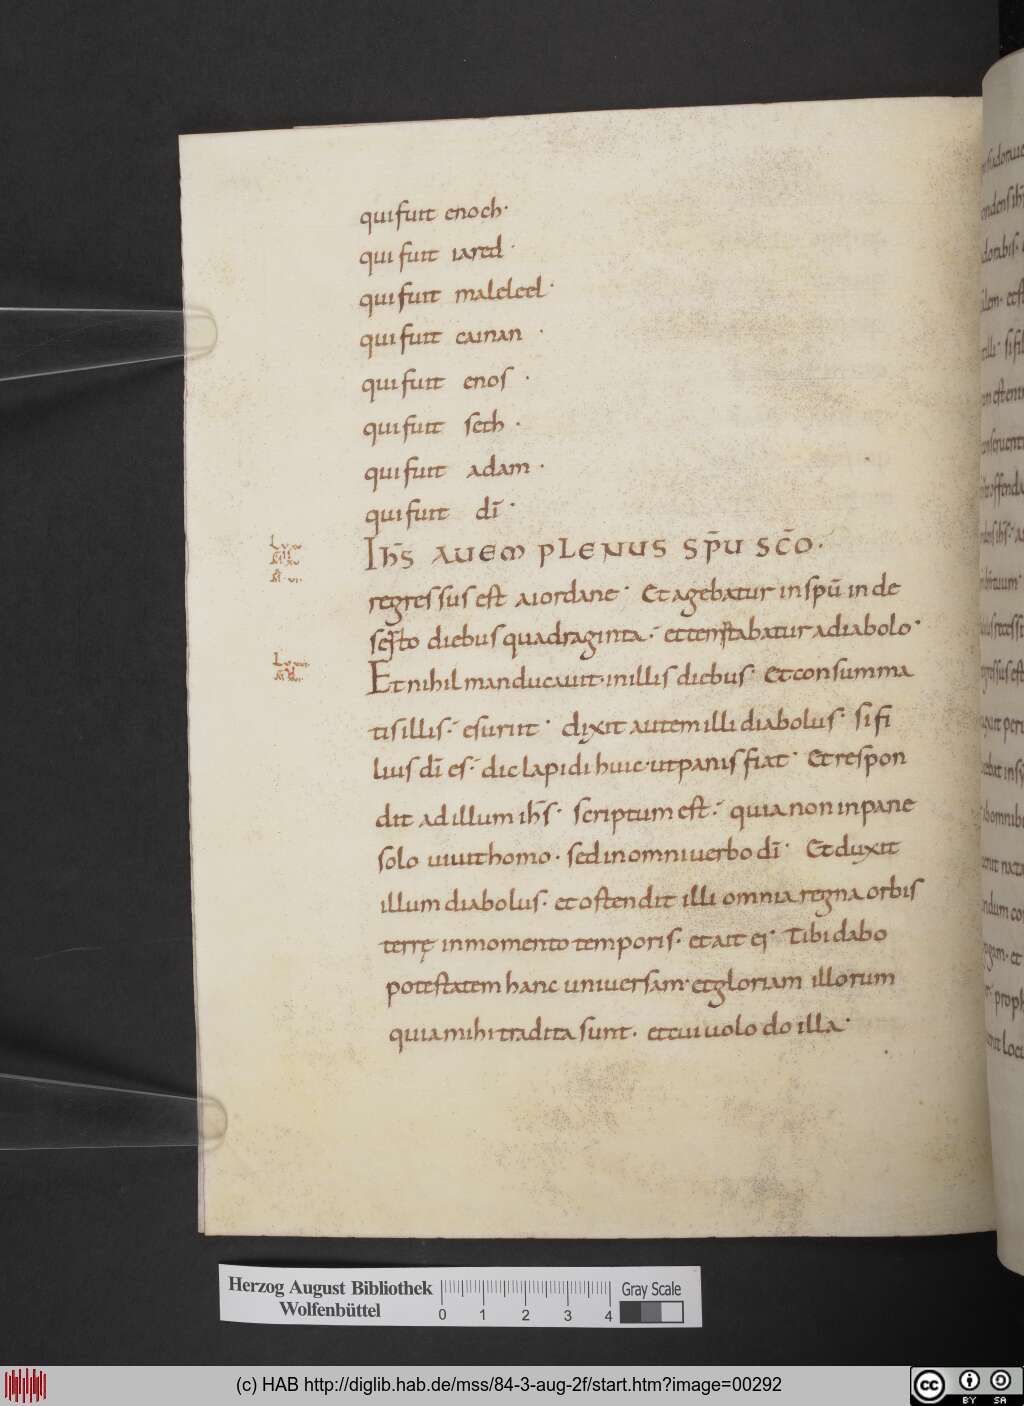 qui fuit enoch·
qui fuit iared·
qui fuit maleleel·
qui fuit cainan·
qui fuit enos·
qui fuit seth·
qui fuit adam·
qui fuit dī·
Ihs̄ AUEM PLENUS SP̄U SC̄O·
regressus est aiordane· Et agebatur in spū in de
serto diebus quadraginta· et temptabatur a diabolo·
Et nihil manducauit· in illis diebus· Et consumma
tis illis· esuriit· dixit autem illi diabolus· si fi
lius dī es· dic lapidi huic· ut panis fiat· Et respon
dit ad illum ihs̄· scriptum est· quia non in pane
solo uiuit homo· sed in omni uerbo dī· Et duxit
illum diabolus· et ostendit illi omnia regna orbis
terrę in momento temporis· et ait ei· Tibi dabo
potestatem hanc uniuersam· et gloriam illorum
quia mihi tradita sunt· et cui uolo do illa·
Herzog August Bibliothek
Wolfenbüttel
0 1 2 3 4
Gray Scale
(c) HAB http://diglib.hab.de/mss/84-3-aug-2f/start.htm?image=00292
cc BY SA